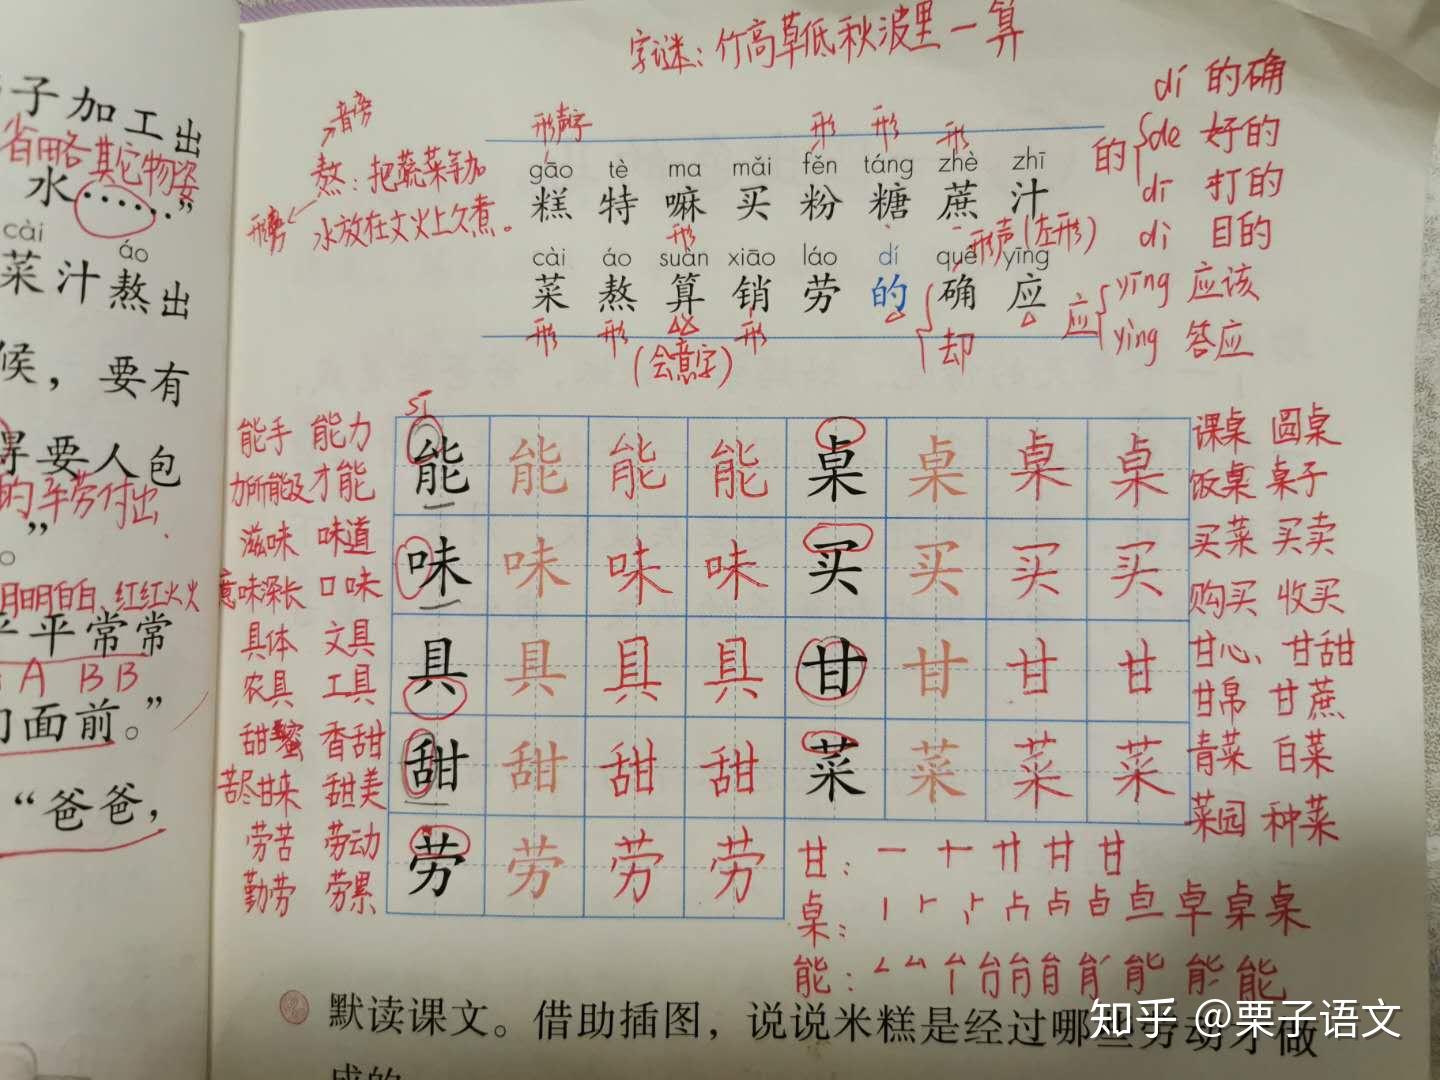 子加工出
省略其它物资
水……”
cài
áo
菜汁熬出
候，要有
得要人包
的辛劳付出
”
明明白白、红红火火
平平常常
A A B B
门面前。”
“爸爸，
字谜：竹高草低秋波里一算
音旁
熬：把蔬菜等加
水放在文火上久煮。
形旁
形声字 形 形 形
gāo tè ma mǎi fěn táng zhè zhī
糕 特 嘛 买 粉 糖 蔗 汁
形 形声（左形）
cài áo suàn xiāo láo dí què yīng
菜 熬 算 销 劳 的 确 应
形 形 形 却
（会意字）
dí 的确
的 de 好的
dī 打的
dì 目的
应 yīng 应该
yìng 答应
sī
能手 能力
力所能及 才能
能 能 能 能 桌 桌 桌 桌
课桌 圆桌
饭桌 桌子
滋味 味道
意味深长 口味
味 味 味 味 买 买 买 买
买菜 买卖
购买 收买
具体 文具
农具 工具
具 具 具 具 甘 甘 甘 甘
甘心、甘甜
甘帛 甘蔗
甜蜜 香甜
苦尽甘来 甜美
甜 甜 甜 甜 菜 菜 菜 菜
青菜 白菜
菜园 种菜
劳苦 劳动
勤劳 劳累
劳 劳 劳 劳
甘：
桌：
能：
默读课文。借助插图，说说米糕是经过哪些劳动才做
成的
知乎 @栗子语文